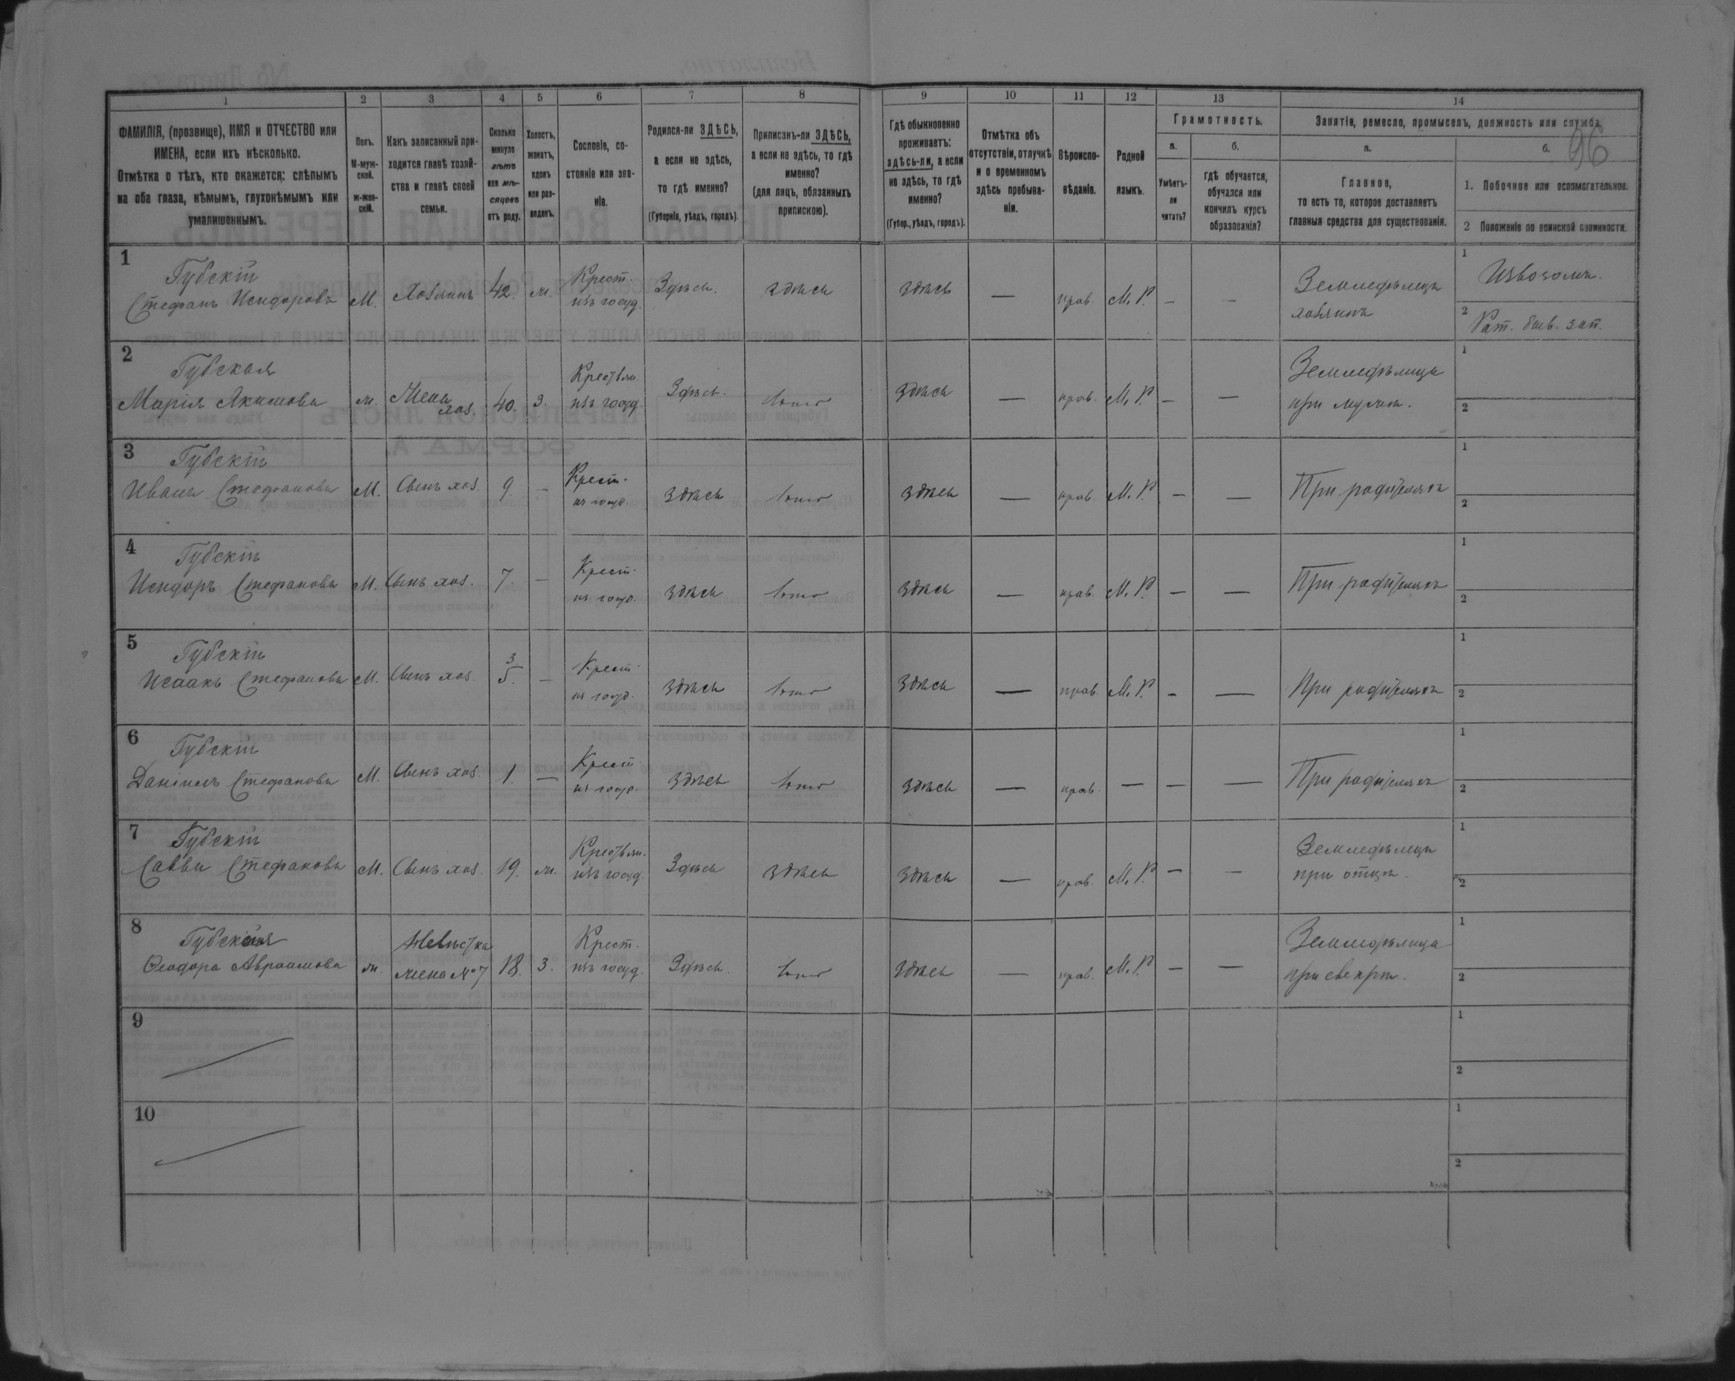 96
1 2 3 4 5 6 7 8 9 10 11 12 13 14
ФАМИЛІЯ, (прозвище), ИМЯ и ОТЧЕСТВО или
ИМЕНА, если ихъ нѣсколько.
Отмѣтка о тѣхъ, кто окажется: слѣпымъ
на оба глаза, нѣмымъ, глухонѣмымъ или
умалишеннымъ.
Полъ.
М-муж-
ской.
ж-жен-
скій.
Какъ записанный при-
ходится главѣ хозяй-
ства и главѣ своей
семьи.
Сколько
минуло
лѣтъ
или мѣ-
сяцевъ
отъ роду.
Холостъ,
женатъ,
вдовъ
или раз-
веденъ.
Сословіе, со-
стояніе или зва-
ніе.
Родился-ли ЗДѢСЬ,
а если не здѣсь,
то гдѣ именно?
(Губернія, уѣздъ, городъ).
Приписанъ-ли ЗДѢСЬ,
а если не здѣсь, то гдѣ
именно?
(для лицъ, обязанныхъ
припискою).
Гдѣ обыкновенно
проживаетъ:
здѣсь-ли, а если
не здѣсь, то гдѣ
именно?
(Губер., уѣздъ, городъ).
Отмѣтка объ
отсутствіи, отлучкѣ
и о временномъ
здѣсь пребыва-
ніи.
Вѣроиспо-
вѣданіе.
Родной
языкъ.
Грамотность.
а.
Умѣетъ-
ли
читать?
б.
гдѣ обучается,
обучался или
кончилъ курсъ
образованія?
Занятіе, ремесло, промыселъ, должность или служба.
а.
Главное,
то есть то, которое доставляетъ
главныя средства для существованія.
б.
1. Побочное или вспомогательное.
2 Положеніе по воинской повинности.
1
Губскій
Стефанъ Исидоровъ М. Хозяинъ 42. ж. Крест. изъ госуд. Здѣсь. здѣсь здѣсь — прав. М. Р. — — Земледѣлецъ хозяинъ
1 Извозомъ.
2 Рат. быв. зап.
2
Губская
Марія Якимова ж. Жена хоз. 40. з Крестьян. изъ госуд. Здѣсь. тоже здѣсь — прав. М. Р. — — Земледѣлица при мужѣ.
1
2
3
Губскій
Иванъ Стефановъ М. Сынъ хоз. 9. — Крест. из госуд. здѣсь тоже здѣсь — прав. М. Р. — — При родителяхъ
1
2
4
Губскій
Исидоръ Стефановъ М. Сынъ хоз. 7. — Крест. из госуд. здѣсь тоже здѣсь — прав. М. Р. — — При родителяхъ
1
2
5
Губскій
Исаакъ Стефановъ М. Сынъ хоз. — Крест. из госуд. здѣсь тоже здѣсь — прав. М. Р. — — При родителяхъ
1
2
6
Губскій
Даніилъ Стефановъ М. Сынъ хоз. 1. — Крест из госуд. здѣсь тоже здѣсь — прав. — — — При родителяхъ
1
2
7
Губскій
Савва Стефановъ М. Сынъ хоз. 19. ж. Крестьян. изъ госуд Здѣсь здѣсь здѣсь — прав. М. Р. — — Земледѣлецъ при отцѣ.
1
2
8
Губская
Ѳеодора Авраамова ж. Невѣстка жена №7 18. з. Крест. изъ госуд. Здѣсь. тоже здѣсь — прав. М. Р. — — Земледѣлица при свекрѣ.
1
2
9
1
2
10
1
2